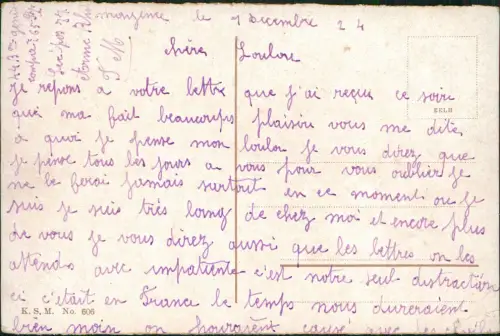 mayence le 1 Decembre 24
chère Loulou
Je repons a votre lettre que j'ai reçue ce soire
qui ma fait beaucoups plaisiu vous me dite
a quoi je pense mon loulou je vous direz que
je pense tous les jours a vous pour vous oublier je
ne le ferai jamais surtout en ce moment ou je
suis je suis très loing de chez moi et encore plus
de vous je vous direz aussi que les lettres on les
attends avec impatiente c'est notre seul distraction
ici c'était en France le temps nous dureraient
bien moin on pourraient causé avec
FELD
K. S. M. No. 606